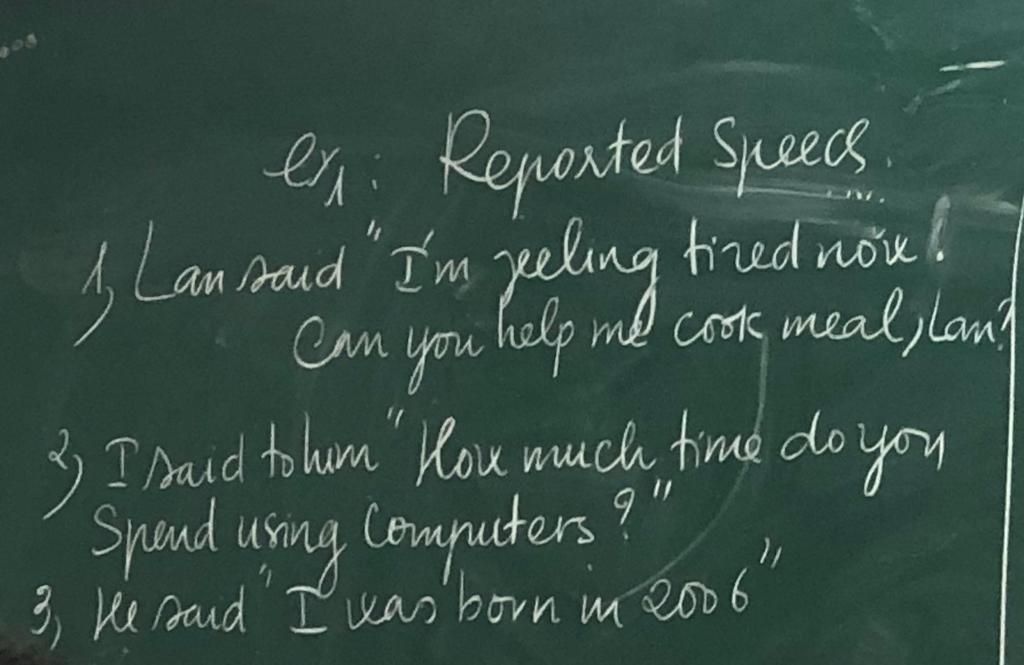 ex1: Reported Speech.
1, Lan said "I'm feeling tired now!
Can you help me cook meal, Lan?
2, I said to him "How much time do you
Spend using Computers?"
3, He said "I was born in 2006"